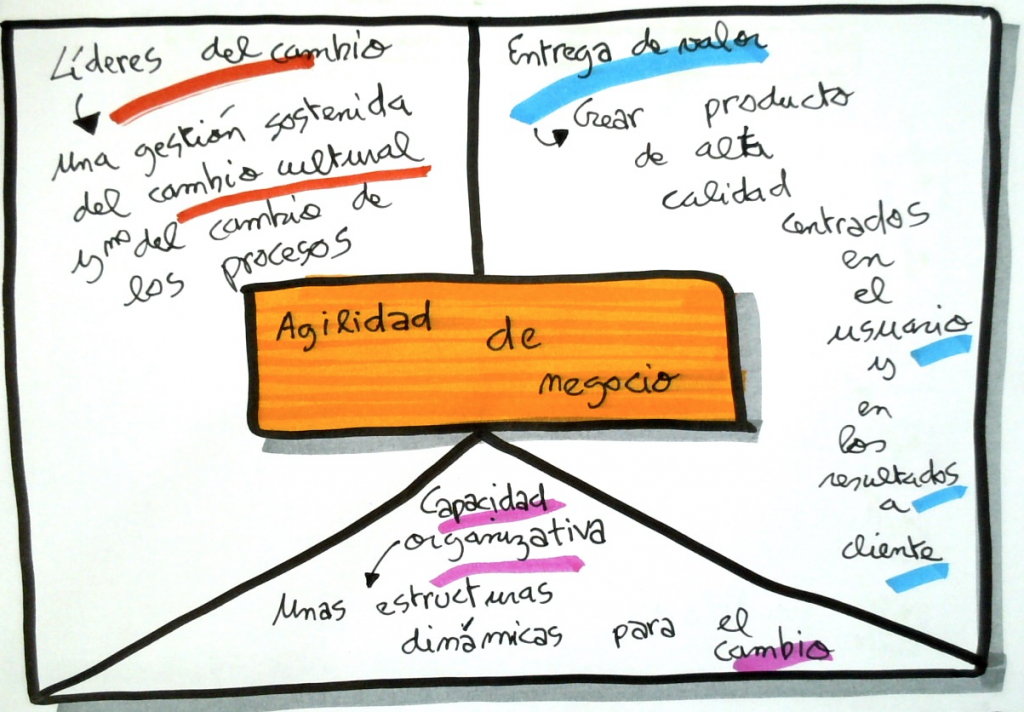 Líderes del cambio
una gestión sostenida
del cambio cultural
y no del cambio de
los procesos
Entrega de valor
Crear producto
de alta
calidad
centrados
en
el
usuario
y
en
los
resultados
a
cliente
Agilidad de
negocio
Capacidad
organizativa
Unas estructuras
dinámicas para el
cambio